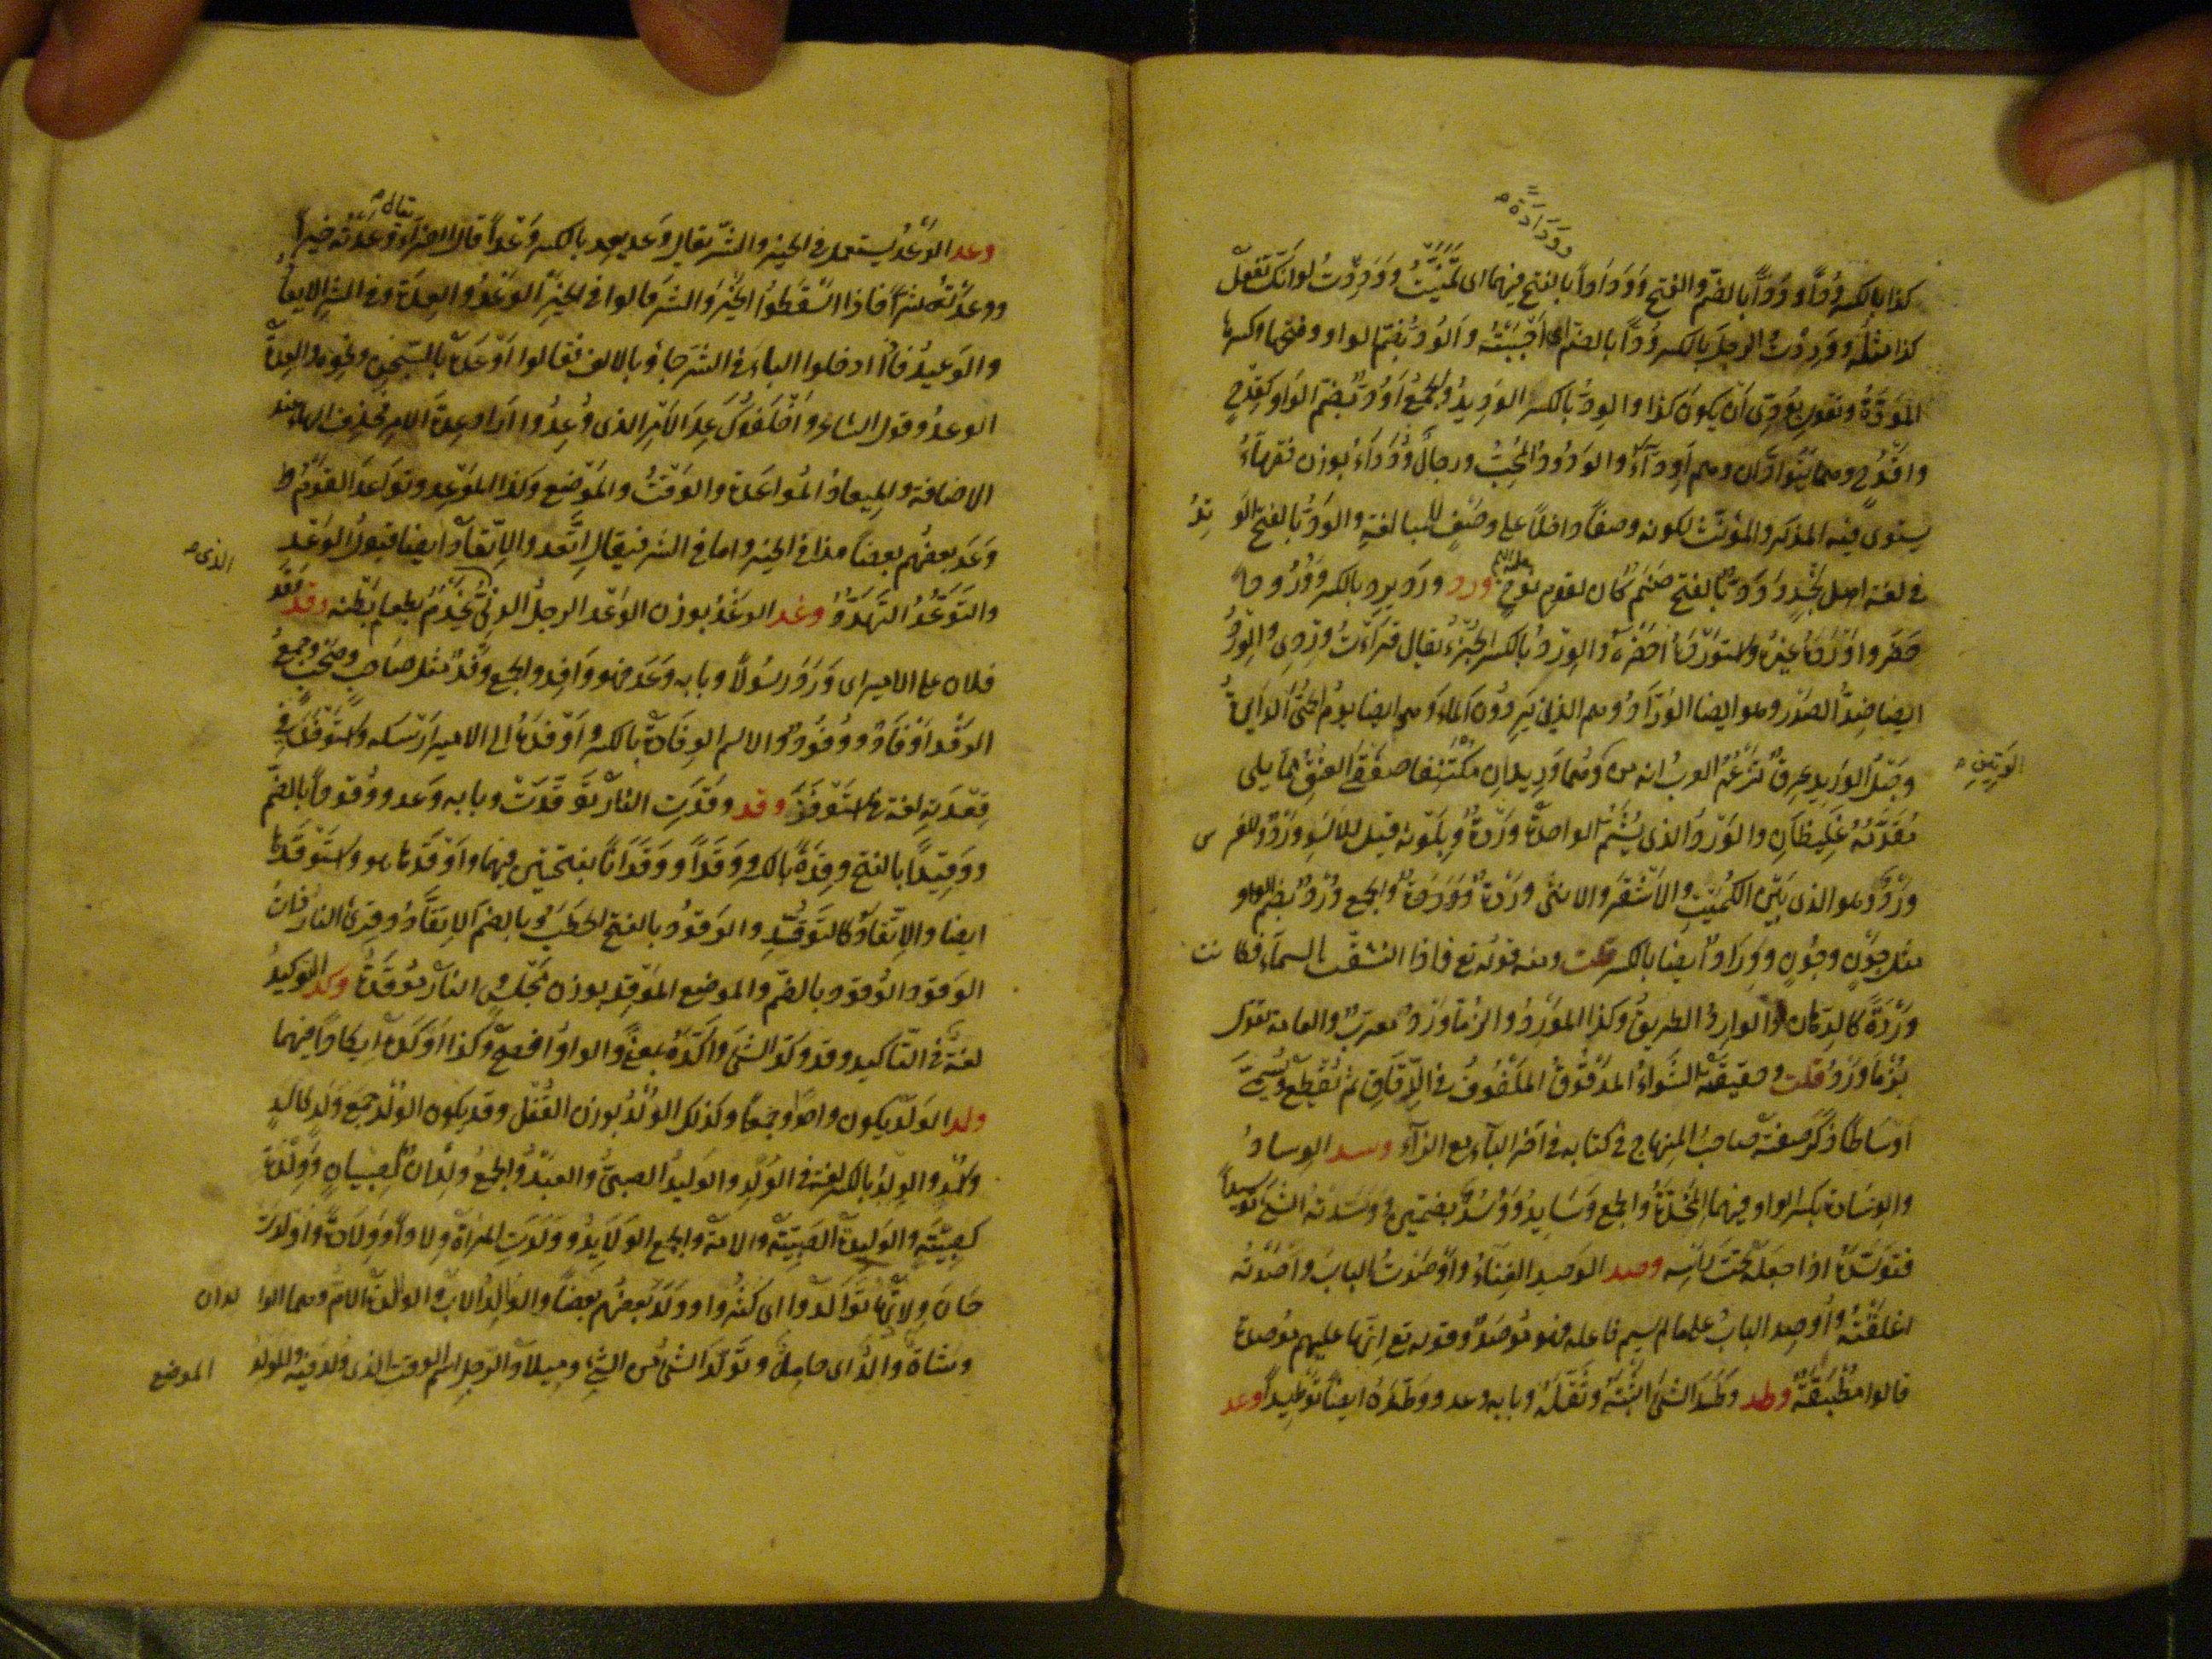 وَوَدَادَةً صح
كذا بالكسر وُدًّا و وَدًّا بالضم والفتح وَوَدَادًا بالفتح فيهما اى تَمَنَّيْتُ وَوَدِدْتُ لو انّك تفعل
كذا مثله ووَدِدْتُ الرجلَ بالكسر وُدًّا بالضم اى اَحْبَبْتُه والوُدّ بضم الواو وفتحها وكسرها
المَوَدَّةُ وتقول بِوُدِّى اَنْ يكونَ كذا والوِدّ بالكسر الوَدِيدُ والجمعُ اَوُدٌّ بضم الواو كقِدْحٍ
واَقْدُحٍ وهما يَتَوَادَّانِ وهم اَوِدَّاءُ والوَدُودُ المُحِبُّ ورجالٌ وُدَدَاءُ بوزن فُقَهَاءُ
يستوى فيه المذكر والمؤنث لكونه وصفًا داخلًا على وصفٍ للمبالغة والوَدُّ بالفتح الوَتِدُ
فى لغة اهل نَجْدٍ ووَدّ بالفتح صَنَمٌ كان لقوم نوحٍ عليه السلام ورد وَرَدَ يرِد بالكسر وُرُودًا
حَضَر واَوْرَدَهُ غيرُه واسْتَوْرَدَهُ اَحْضَرَهُ والوِرْدُ بالكسر الجُزْءُ يقال قَرَأْتُ وِرْدِى والوِرْدُ
ايضا ضِدُّ الصَّدْرِ وهو ايضا الوُرَّادُ وهم الذين يَرِدُونَ الماءَ وهو ايضا يومُ الحُمَّى الدَّائِرَةُ
وحَبْلُ الوَرِيدِ عِرقٌ تَزْعُمُ العربُ انه من الوَتِينِ صح وهما وَرِيدَانِ مُكْتَنِفَا صَفْقَى العُنُقِ مما يلى
مُقَدَّمَهُ غَلِيظَانِ والوَرْدُ الذى يُشَمّ الواحدة وَرْدَةٌ وبِلَوْنِهِ قيل للاَسَدِ وَرْدٌ وللفرس
وَرْدٌ وهو الذى بَيْنَ الكُمَيْتِ والاَشْقَرِ والانثى وَرْدَةٌ والجمع وُرْدٌ بضم الواو
مثل جَوْنٍ وجُونٍ وِورَادٌ ايضا بالكسر قلت ومنه قوله تع فاذا انشقّت السماء فكانت
وَرْدَةً كالدِّهَانِ والوارِدُ الطريقُ وكذا المَوْرِدُ والزُّمَاوَرْدُ معرب والعامة تقول
بَزْمَاوَرْدُ قلت وحقيقته الشِّوَاءُ المَدْقُوقُ المَلْفُوفُ فى الرِّقَاقِ ثم يُقَطَّع ويُسَمَّى
اَوْسَاطًا ذَكَرَ صفته صاحبُ المنهاج فى كتابه فى آخر الباء مع الزآء وسد الوِسَادُ
والوِسَادَةُ بكسر الواو فيهما المِخَدَّةُ والجمع وَسَايِدُ وَوُسُدٌ بضمتين ووَسَّدْتُه الشَّىءَ تَوْسِيدًا
فتَوَسَّدَهُ اذا جعله تحت رَأْسِه وصد الوَصِيد الفِنَاءُ واَوْصَدْتُ البابَ واٰصَدْتُه
اَغْلَقْتُه واُوصِد البابُ على ما لم يسم فاعله فهو مُوصَدٌ وقوله تع اِنَّها عليهم مُوصَدَة
قالوا مُطْبَقَةٌ وطد وَطَدَ الشىءَ اَثْبَتَهُ وثَقَّلَه وبابه وعد ووَطَّدَهُ ايضًا تَوْطِيدًا وعد
وعد الوَعْدُ يستعمل فى الخير والشَّرّ يقال وَعَدَ يعِد بالكسر وَعْدًا قال الفراء يقال صح وَعَدْتُه خيرًا
ووعَدْتُه شرًّا فاذا اَسْقَطُوا الخَيْرَ والشرّ قالوا فى الخَيْرِ الوَعْدُ والعِدَةُ وفى الشر الايعادُ
والوَعِيدُ فان ادخلوا الباءَ فى الشر جاؤا بالالف فقالوا اَوْعَدَهُ بالسِّجْنِ ونحوه والعِدَةُ
الوعدُ وقول الشاعر وَاَخْلَفُوكَ عِدَ الاَمْرِ الذى وُعِدُوا اراد عِدَةَ الامر فحذف الهاء عند
الاضافة والمِيعَادُ المُواعَدَة والوَقْتُ والمَوْضِع وكذا المَوْعِد وتَوَاعَدَ القَوْمُ
وَعَدَ بعضُهم بعضًا هذا فى الخير واما فى الشر فيقال اِتَّعَد والاِتِّعَادُ ايضا قبولُ الوَعْد
والتَّوَعُّدُ التَّهَدُّدُ وغد الوغْدُ بوزن الوَعْد الرجلُ الدَّنِىُّ الذى صح يَخْدُمُ بطعام بَطْنه وفد وَفَد
فلان على الامير اى وَرَدَ رَسُولًا وبابه وَعَدَ فهو وَافِد والجمع وَفْدٌ مثل صَاحِبٍ وصَحْبٍ وجمعُ
الوَفْدِ اَوْفَادٌ ووُفُودٌ والاسم الوِفَادَةُ بالكسر واَوْفَدَهُ الى الامير اَرْسَله واسْتَوْفَدَ فى
قِعْدَتِه لغة فى اسْتَوْفَزَ وقد وقَدَتِ النارُ تَوَقَّدَتْ وبابه وَعَد ووُقُودًا بالضم
ووَقِيدًا بالفتح وقِدَةً بالكسر ووَقَدًا ووَقَدَانًا بفتحتين فيهما واَوْقَدَهَا هو واسْتَوْقَدَها
ايضا والاِتِّقَادُ كالتَّوَقُّدِ والوَقُودُ بالفتح الحَطَبُ وبالضم الاِتِّقَادُ وقرئ النار ذات
الوَقود والوُقود بالضم والموضع المَوْقِد بوزن مَجْلِسٍ والنارُ مُوقَدَةٌ وكد التوكيد
لغة فى التأكيد وقد وكّد الشىءَ واَكَّدَهُ بمعنًى والواوُ افصحُ وكذا اَوْكَدَه ايكادًا فيهما
ولد الوَلَد يكون واحدًا وجمعًا وكذلك الوُلْدُ بوزن القُفْل وقد يكون الوُلْد جمع وَلَدٍ كاَسَدٍ
واُسْدٍ والوِلْدُ بالكسر لغة فى الوُلْدِ والوَلِيدُ الصبىُّ والعَبْدُ والجمعُ وِلْدَانٌ كصِبْيَانٍ ووِلْدَةٌ
كصِبْيَةٍ والوَلِيدَةُ الصَّبِيَّة والامة والجمع الوَلَايِدُ ووَلَدَتِ المرأةُ وِلادًا ووِلَادَةً واَوْلَدَتْ
حَانَ وِلَادُهَا وتَوَالَدُوا اى كَثُرُوا ووَلَدَ بعضُهم بعضًا والوالِدُ الاب والوالِدة الامّ وهما الوالدان
وشاةٌ وَالِدٌ اى حامِلٌ وتَوَلَّدَ الشىء من الشىء ومِيلَادُ الرجل اسم الوقت الذى وُلِدَ فيه والمَوْلِدُ الموضع